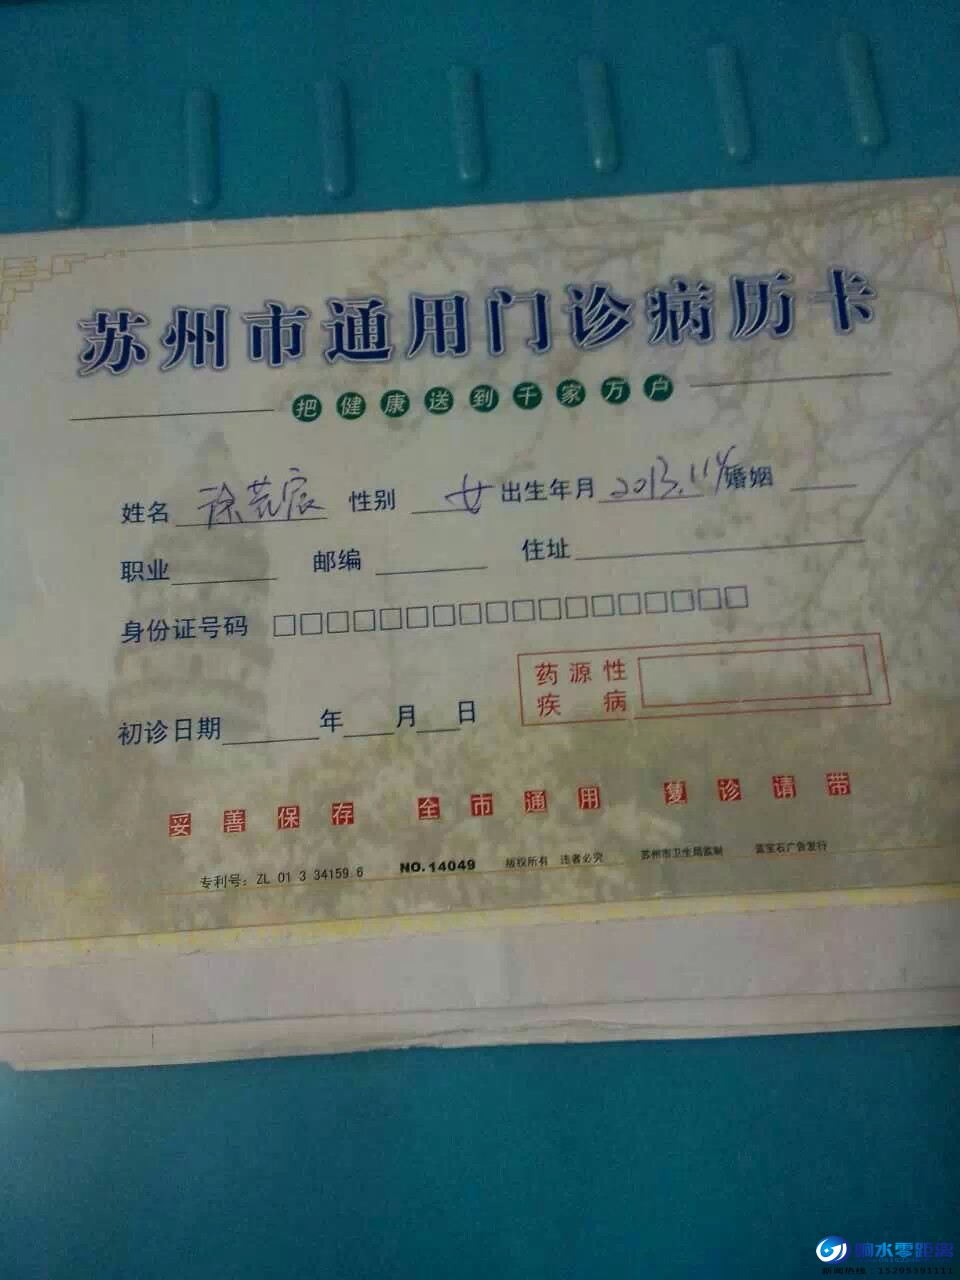 苏州市通用门诊病历卡
把健康送到千家万户
姓名 徐艺宸 性别 女 出生年月 2013.11.4 婚姻
职业 邮编 住址
身份证号码 □□□□□□□□□□□□□□□□□□
药源性
疾病
初诊日期 年 月 日
妥善保存 全市通用 复诊请带
专利号：ZL 01 3 34159.6 NO.14049 版权所有 违者必究 苏州市卫生局监制 蓝宝石广告发行
响水零距离
新闻热线：15295391111